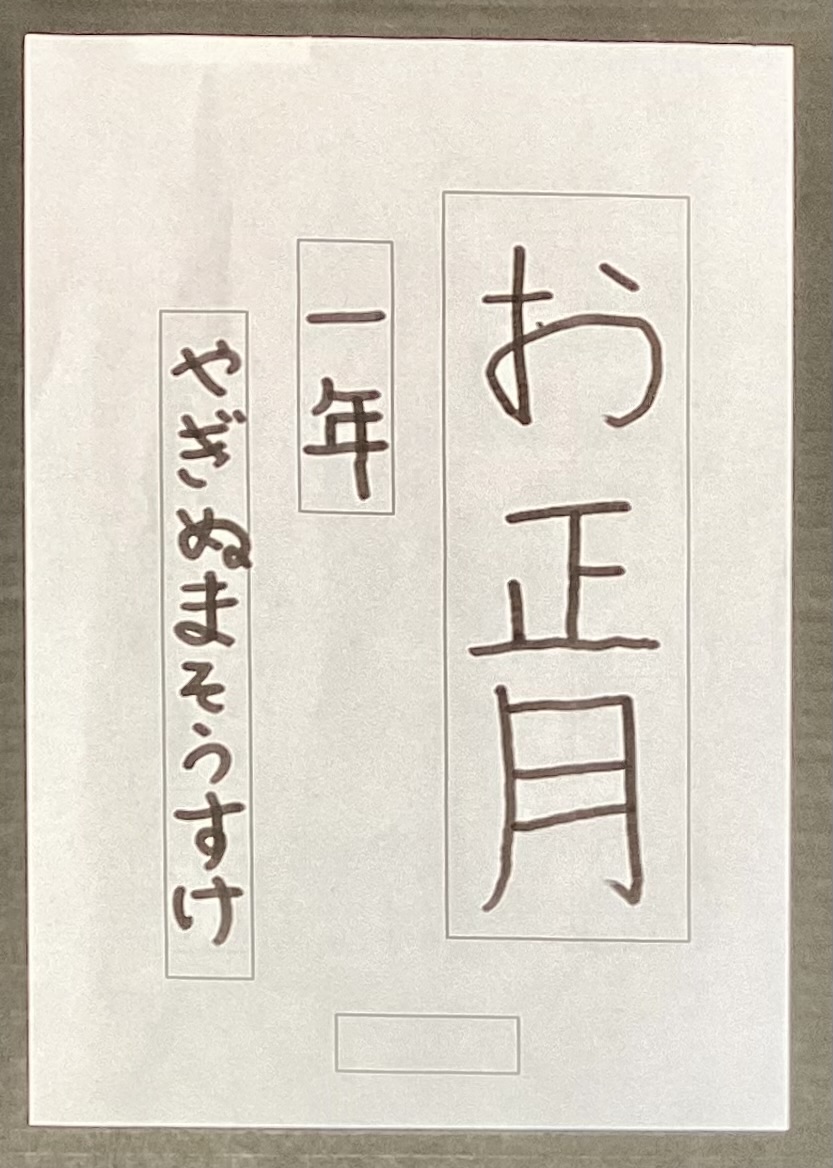 お正月
一年
やぎぬまそうすけ